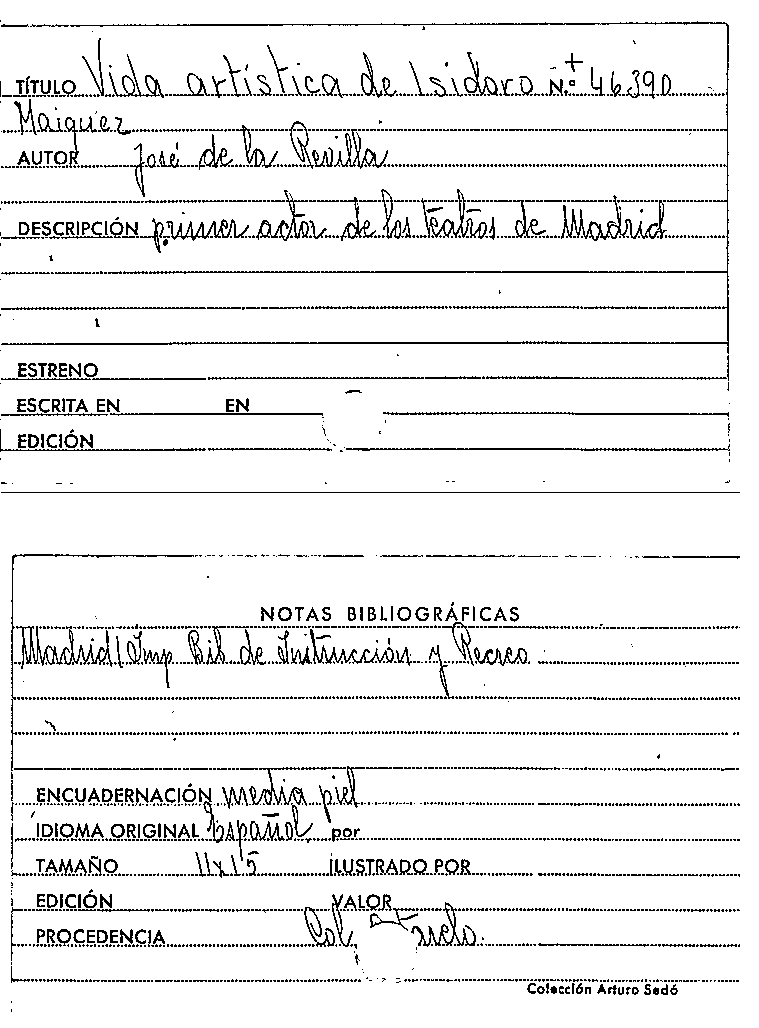 TÍTULO Vida artística de Isidoro N.º + 46390
Maiquez
AUTOR José de la Revilla
DESCRIPCIÓN primer actor de los teatros de Madrid
ESTRENO
ESCRITA EN EN
EDICIÓN
NOTAS BIBLIOGRÁFICAS
Madrid / Imp Bib de Instrucción y Recreo
ENCUADERNACIÓN media piel
IDIOMA ORIGINAL Español por
TAMAÑO 11x15 ILUSTRADO POR
EDICIÓN VALOR
PROCEDENCIA Col.
Colección Arturo Sedó